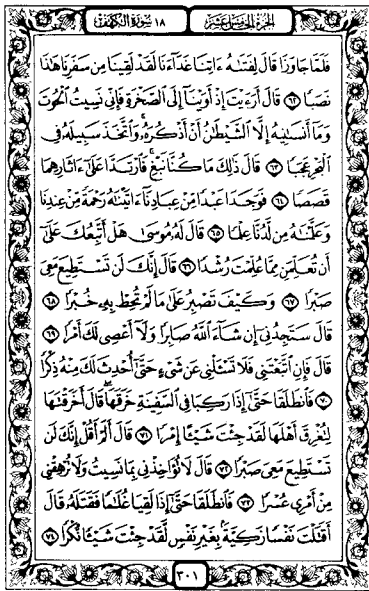 الجزء الخامس عشر
١٨ سورة الكهف
فَلَمَّا جَاوَزَا قَالَ لِفَتَىٰهُ ءَاتِنَا غَدَآءَنَا لَقَدْ لَقِينَا مِن سَفَرِنَا هَٰذَا
نَصَبًا ٦٢ قَالَ أَرَءَيْتَ إِذْ أَوَيْنَآ إِلَى ٱلصَّخْرَةِ فَإِنِّى نَسِيتُ ٱلْحُوتَ
وَمَآ أَنسَىٰنِيهُ إِلَّا ٱلشَّيْطَٰنُ أَنْ أَذْكُرَهُۥ وَٱتَّخَذَ سَبِيلَهُۥ فِى
ٱلْبَحْرِ عَجَبًا ٦٣ قَالَ ذَٰلِكَ مَا كُنَّا نَبْغِ فَٱرْتَدَّا عَلَىٰٓ ءَاثَارِهِمَا
قَصَصًا ٦٤ فَوَجَدَا عَبْدًا مِّنْ عِبَادِنَآ ءَاتَيْنَٰهُ رَحْمَةً مِّنْ عِندِنَا
وَعَلَّمْنَٰهُ مِن لَّدُنَّا عِلْمًا ٦٥ قَالَ لَهُۥ مُوسَىٰ هَلْ أَتَّبِعُكَ عَلَىٰٓ
أَن تُعَلِّمَنِ مِمَّا عُلِّمْتَ رُشْدًا ٦٦ قَالَ إِنَّكَ لَن تَسْتَطِيعَ مَعِىَ
صَبْرًا ٦٧ وَكَيْفَ تَصْبِرُ عَلَىٰ مَا لَمْ تُحِطْ بِهِۦ خُبْرًا ٦٨
قَالَ سَتَجِدُنِىٓ إِن شَآءَ ٱللَّهُ صَابِرًا وَلَآ أَعْصِى لَكَ أَمْرًا ٦٩
قَالَ فَإِنِ ٱتَّبَعْتَنِى فَلَا تَسْـَٔلْنِى عَن شَىْءٍ حَتَّىٰٓ أُحْدِثَ لَكَ مِنْهُ ذِكْرًا
٧٠ فَٱنطَلَقَا حَتَّىٰٓ إِذَا رَكِبَا فِى ٱلسَّفِينَةِ خَرَقَهَا ۖ قَالَ أَخَرَقْتَهَا
لِتُغْرِقَ أَهْلَهَا لَقَدْ جِئْتَ شَيْـًٔا إِمْرًا ٧١ قَالَ أَلَمْ أَقُلْ إِنَّكَ لَن
تَسْتَطِيعَ مَعِىَ صَبْرًا ٧٢ قَالَ لَا تُؤَاخِذْنِى بِمَا نَسِيتُ وَلَا تُرْهِقْنِى
مِنْ أَمْرِى عُسْرًا ٧٣ فَٱنطَلَقَا حَتَّىٰٓ إِذَا لَقِيَا غُلَٰمًا فَقَتَلَهُۥ قَالَ
أَقَتَلْتَ نَفْسًا زَكِيَّةًۢ بِغَيْرِ نَفْسٍ لَّقَدْ جِئْتَ شَيْـًٔا نُّكْرًا ٧٤
٣٠١